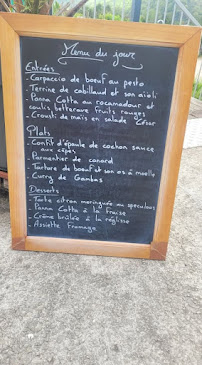 Menu du jour
Entrées
- Carpaccio de boeuf au pesto
- Terrine de cabillaud et son aïoli
- Panna Cotta au rocamadour et
coulis betterave fruits rouges
- Crousti de maïs en salade César
Plats
- Confit d'épaule de cochon sauce
aux cèpes
- Parmentier de canard
- Tartare de boeuf et son os à moelle
- Curry de Gambas
Desserts
- Tarte citron meringuée au speculoos
- Panna Cotta à la fraise
- Crème brûlée à la réglisse
- Assiette Fromage